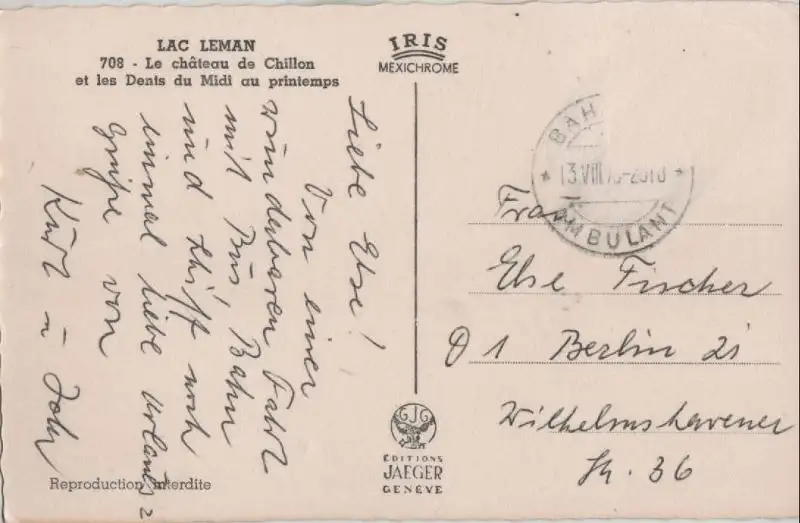 LAC LEMAN
708 - Le château de Chillon
et les Dents du Midi au printemps
IRIS
MEXICHROME
Liebe Else!
Von einer
wunderbaren Fahrt
mit Bus, Bahn
und Schiff noch
einmal liebe Urlaubs=
grüße von
Kurt u
BAH
13.VIII
AMBULANT
Frau
Else Fischer
D 1 Berlin 21
Wilhelmshavener
Str. 36
EDITIONS
JAEGER
GENÈVE
Reproduction interdite